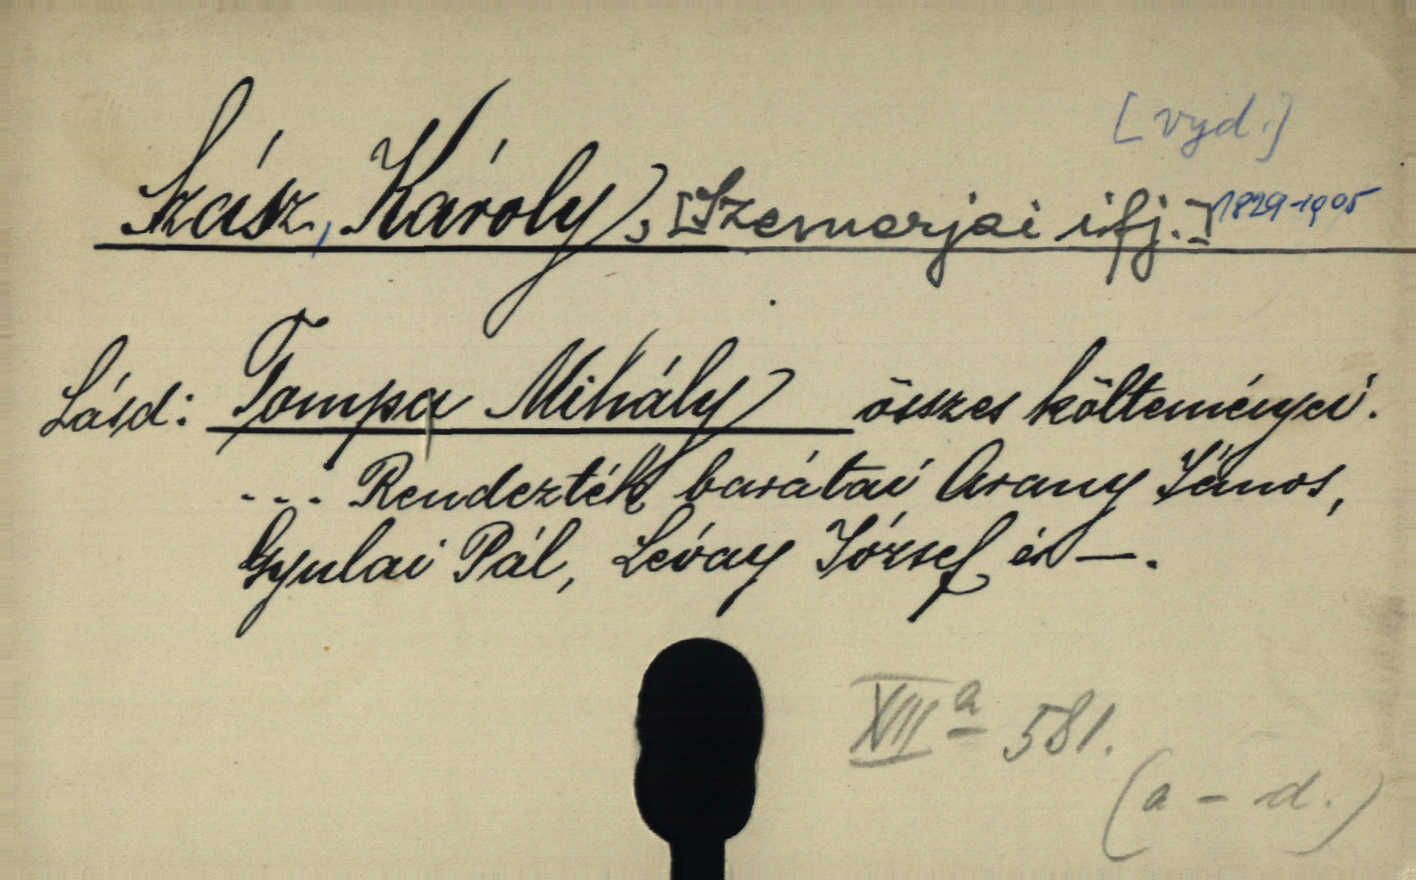 [vyd.]
Szász, Károly, [Szemerjai ifj.] 1829-1905
Lásd: Tompa Mihály összes költeményei.
... Rendezték barátai Arany János,
Gyulai Pál, Lévay József és —.
XIII a 581.
(a - d.)